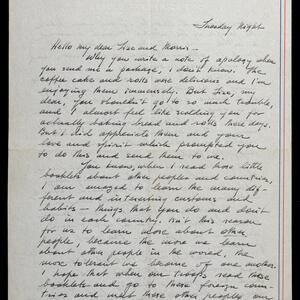 Tuesday Night
Hello my dear Lise and Morris -
Why you write a note of apology when
you send me a package, I don't know. The
coffee cake and rolls were delicious and I'm
enjoying them immensely. But Lise, my
dear, you shouldn't go to so much trouble,
and I almost feel like scolding you for
actually baking bread and rolls these days.
But I did appreciate them and your
love and spirit which prompted you
to do this and send them to me.
You know, when I read those little
booklets about other peoples and countries,
I am amazed to learn the many dif-
ferent and interesting customs and
habits - things that you do and don't
do in each country. Isn't this reason
for us to learn more about other
people, because the more we learn
about other people in the world, the
more tolerant we became of one another.
I hope that when our troops read these
booklets and go to these foreign coun-
tries and meet those other peoples, our